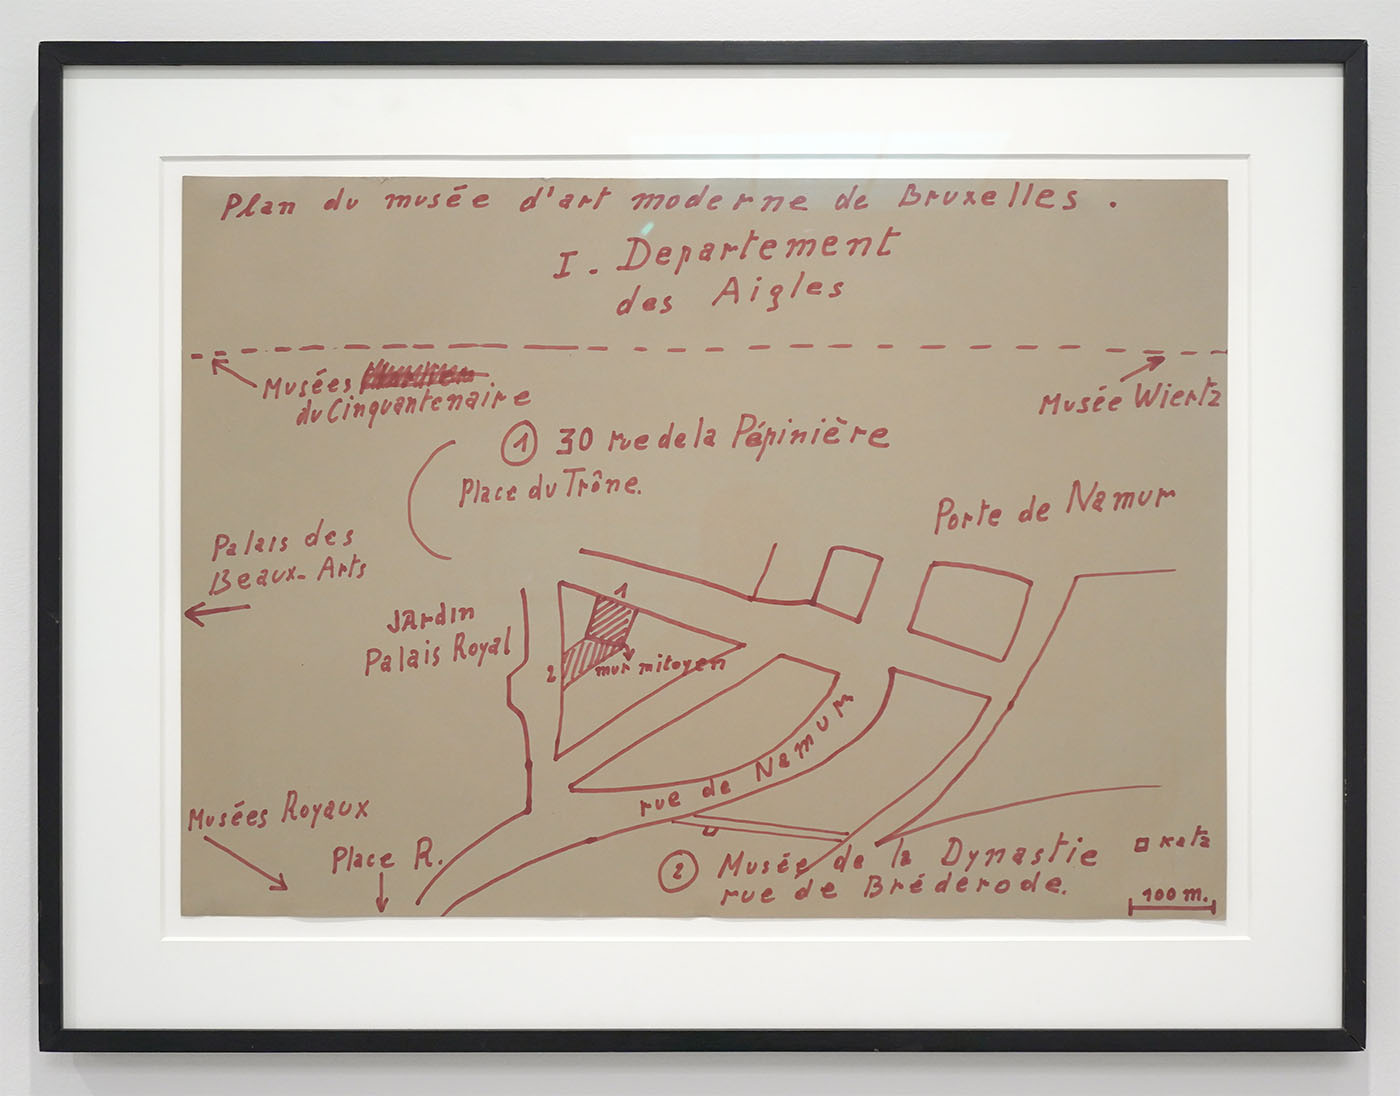 Plan du musée d'art moderne de Bruxelles.
I. Departement
des Aigles
Musées
du Cinquantenaire
Musée Wiertz
1 30 rue de la Pépinière
Place du Trône.
Porte de Namur
Palais des
Beaux-Arts
JArdin
Palais Royal
1
2
mur mitoyen
rue de Namur
Musées Royaux
Place R.
2 Musée de la Dynastie
rue de Bréderode.
Katz
100 m.